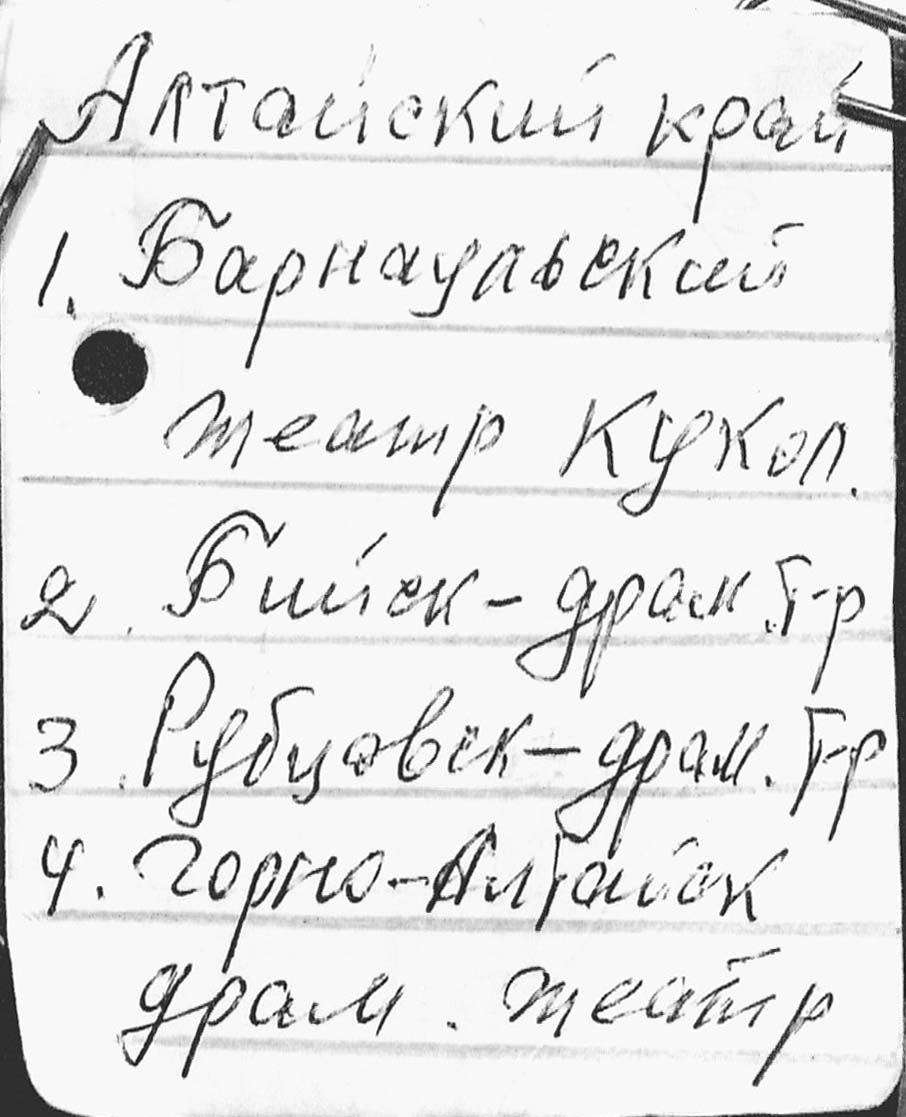 Алтайский край
1. Барнаульский
театр Кукол.
2. Бийск - драм. т-р
3. Рубцовск - драм. т-р
4. Горно-Алтайск
драм. театр